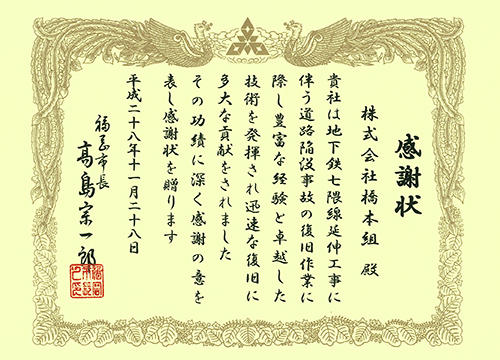 感謝状
株式会社橋本組 殿
貴社は地下鉄七隈線延伸工事に
伴う道路陥没事故の復旧作業に
際し豊富な経験と卓越した
技術を発揮され迅速な復旧に
多大な貢献をされました
その功績に深く感謝の意を
表し感謝状を贈ります
平成二十八年十一月二十八日
福岡市長
高島宗一郎